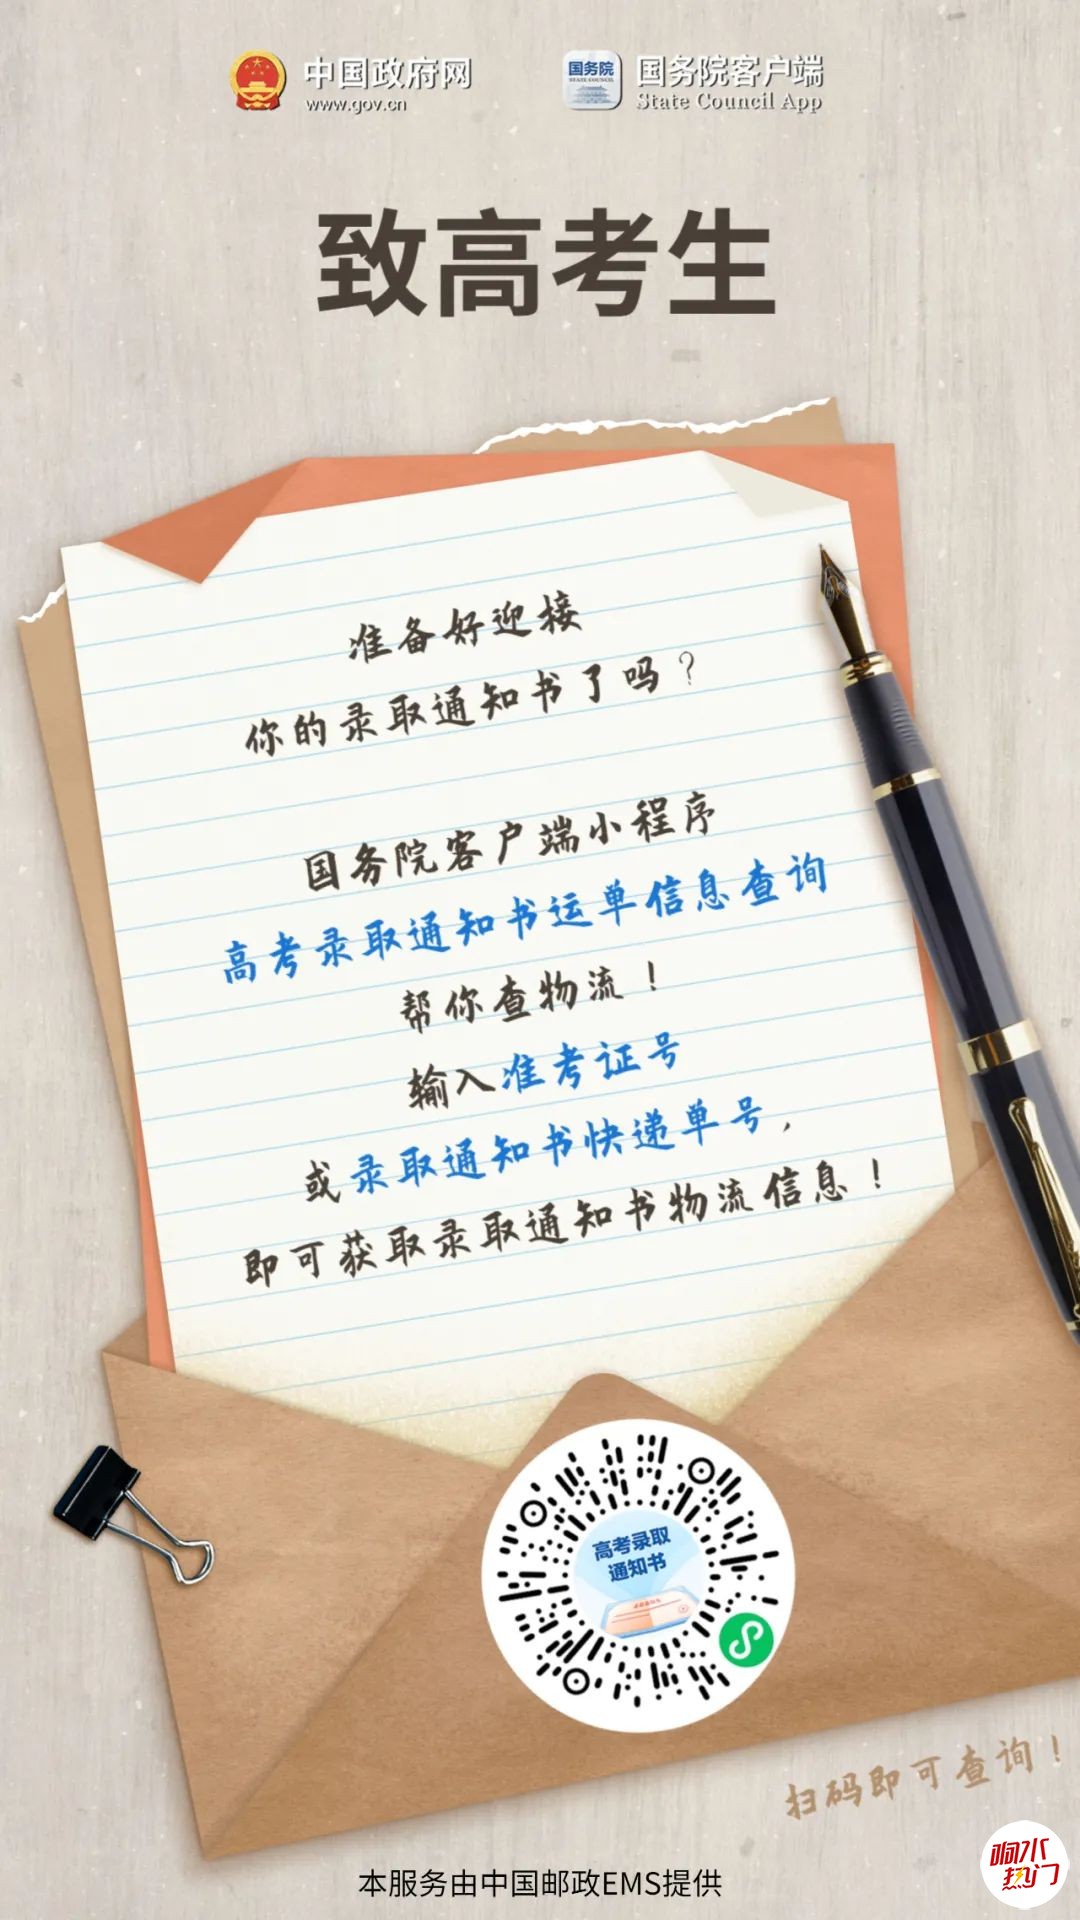 中国政府网
www.gov.cn
国务院
STATE COUNCIL
国务院客户端
State Council App
致高考生
准备好迎接
你的录取通知书了吗？
国务院客户端小程序
高考录取通知书运单信息查询
帮你查物流！
输入准考证号
或录取通知书快递单号，
即可获取录取通知书物流信息！
高考录取
通知书
扫码即可查询！
响水
热门
本服务由中国邮政EMS提供